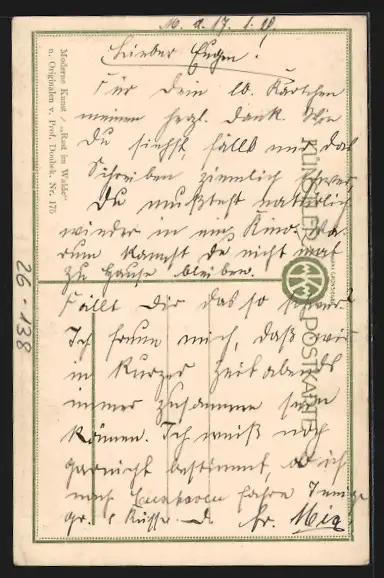 M. d. 17. 1. 19
Lieber Eugen!
Für Dein lb. Kärtchen
meinen herzl. Dank. Wie
Du siehst, fällt mir das
Schreiben ziemlich schwer.
Du mußtest natürlich
wieder in ein Kino. Wa-
rum kannst du nicht mal
zu Hause bleiben.
Fällt Dir das so schwer?
Ich freue mich, daß wir
in kurzer Zeit abends
immer zusammen sein
können. Ich weiß noch
garnicht bestimmt, ob ich
nach fahre Innige
Gr. & Küsse.
Moderne Kunst / „Rast im Walde“
n. Originalen v. Prof. Doubek. Nr. 175
KÜNSTLER-POSTKARTE
26-138